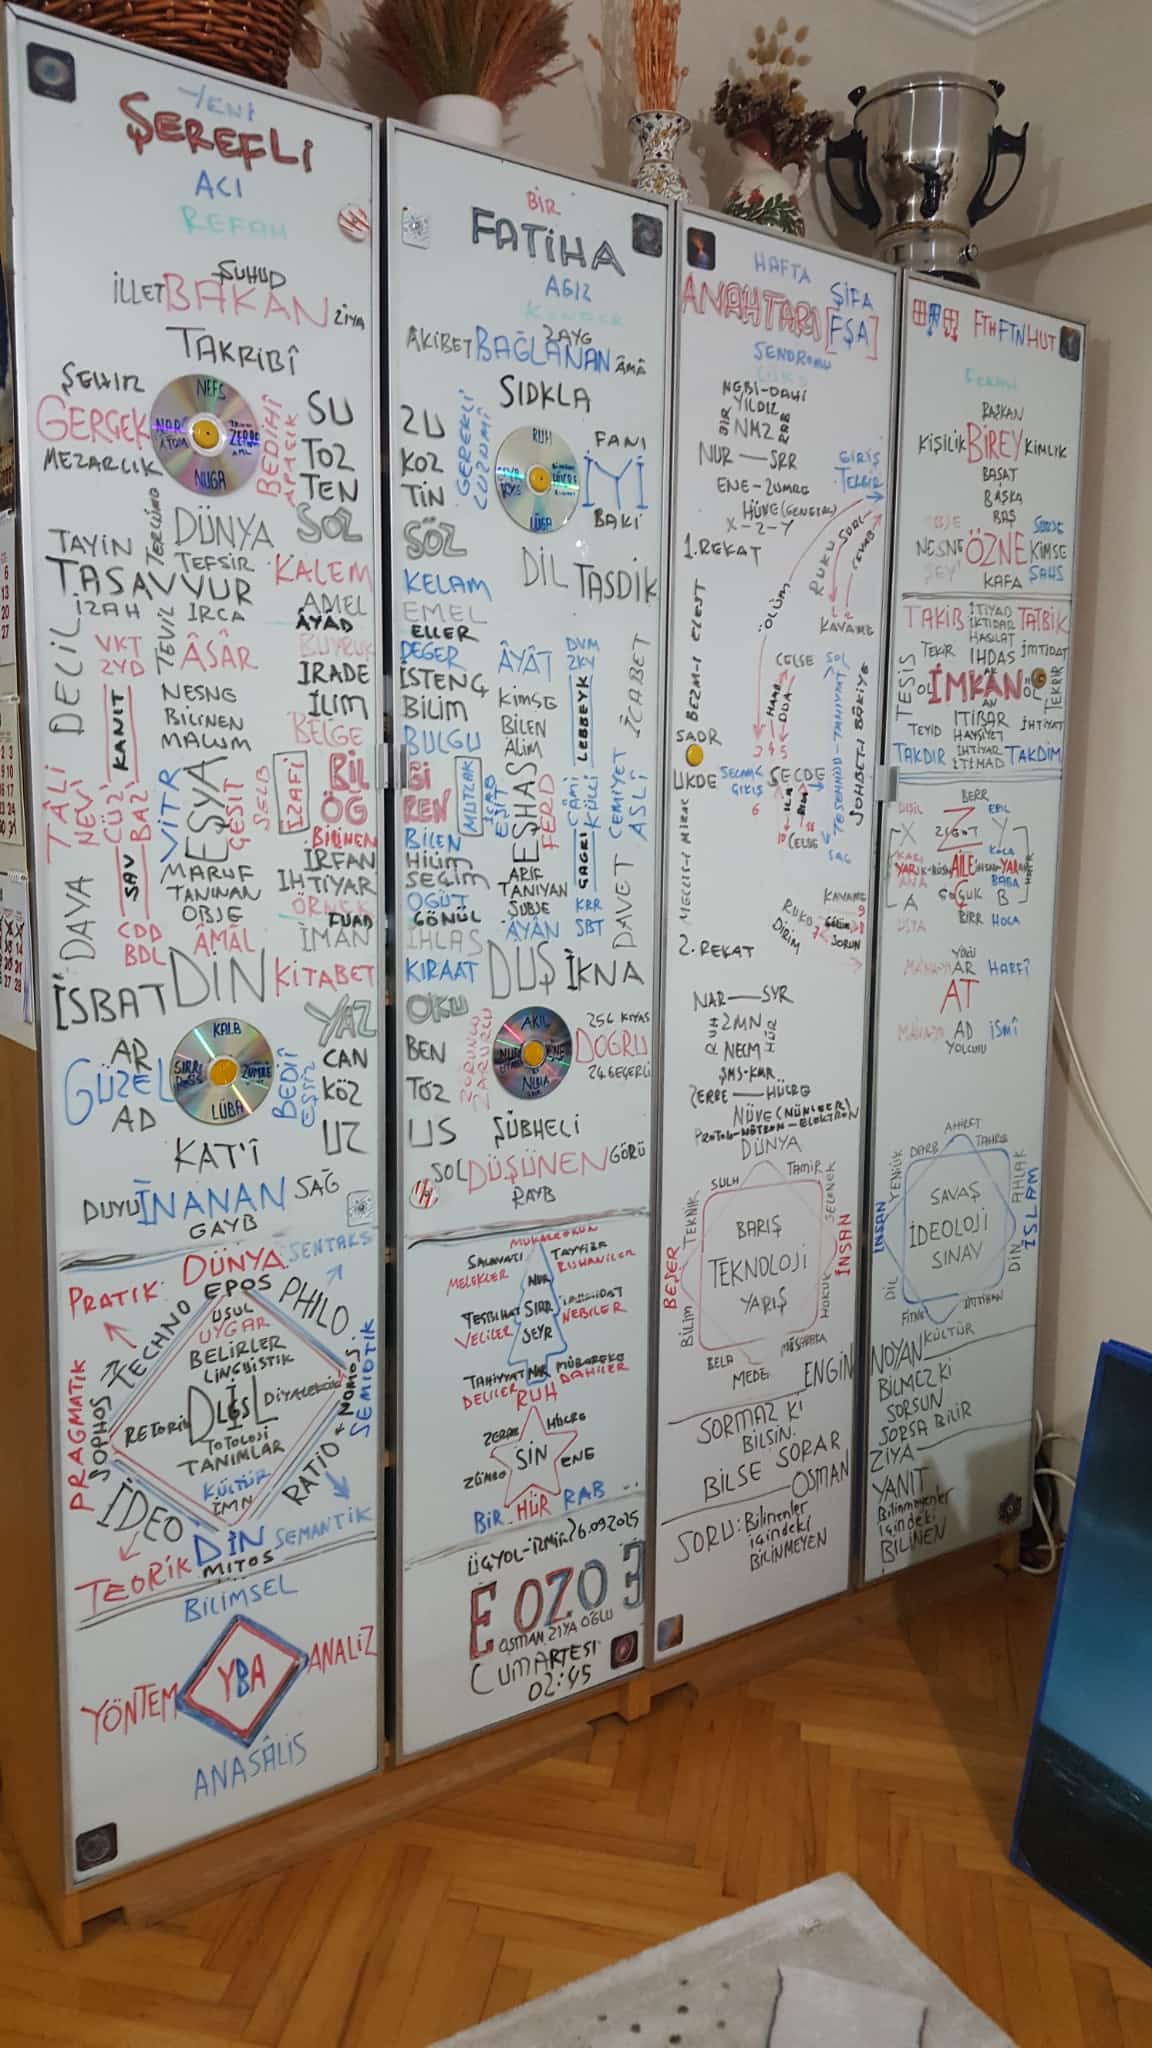 YENİ
ŞEREFLİ
ACI
REFAH
ŞUHUD
İLLET BAKAN ZİYA
TAKRİBÎ
ŞEHİR
GERÇEK
MEZARLIK
NEFS
NUGA
BEDİHÎ
APAÇIK
SU
TOZ
TEN
SÖZ
TAYİN
TERCÜME
DÜNYA
TEFSİR
TASAVVUR
KALEM
İZAH
TEVİL
IRCA
AMEL
ÂYÂD
DELİL
VKT
ZYD
ÂSÂR
BUYRUK
İRADE
İLİM
KANIT
NESNE
BİLİNEN
MALUM
BELGE
TÂLİ
NEVİ
CÜZ'İ
BAZI
VİTR
EŞYA
ÇEŞİT
SELB
İZAFİ
BİL
ÖĞ
BİLİNEN
İRFAN
İHTİYAR
ÖRNEK
FUAD
İMAN
DAVA
SAV
MARUF
TANINAN
OBJE
CDD
BDL
ÂMÂL
İSBAT
DİN
KİTABET
YAZ
AR
GÜZEL
AD
KALB
ZÜMRE
LÜBA
BEDİÎ
EŞSİZ
CAN
KÖZ
UZ
KAT'Î
DUYU İNANAN SAĞ
GAYB
DÜNYA SENTAKS
PRATİK
EPOS
TECHNO
PHILO
USUL
UYGAR
BELİRLER
LİNGUİSTİK
PRAGMATİK
SOPHOS
RETORİK
DİL
DİYALEKTİK
NOMOS
SEMİOTİK
TOTOLOJİ
TANIMLAR
KÜLTÜR
İMN
RATIO
İDEO
DİN
SEMANTİK
TEORİK
MİTOS
BİLİMSEL
YÖNTEM
YBA
ANALİZ
ANASÂLİS
BİR
FATİHA
AĞIZ
ZAYG
AKİBET BAĞLANAN ÂMÂ
SIDKLA
ZU
KOZ
TİN
SÖZ
GEREKLİ
LÜZUMİ
RUH
LÜGA
FANİ
İYİ
BAKİ
DİL TASDİK
KELAM
EMEL
ELLER
DEĞER
İSTENÇ
BİLİM
BULGU
ÂYÂT
KİMSE
BİLEN
ALİM
DVM
ZKY
LEBBEYK
İCABET
Bİ
REN
MUTLAK
İCAB
EŞİT
EŞHAS
FERD
CÂMİ
KÜLLİ
CEMİYET
ASLİ
BİLEN
HİLİM
SEÇİM
ÖĞÜT
GÖNÜL
İHLAS
ARİF
TANIYAN
SUBJE
ÂYÂN
ÇAĞRI
KRR
SBT
DAVET
KIRAAT
DÜŞ
İKNA
OKU
BEN
TÖZ
US
ZORUNLU
ZARURİ
AKIL
256 KIYAS
DOĞRU
24 GEÇERLİ
ŞÜBHELİ
SOL DÜŞÜNEN GÖRÜ
RAYB
MUKARREBUN
SALAVATI
MELEKLER
TAYYİBE
RUHANİLER
NUR
TESBİHAT
VELİLER
SIRR
NEBİLER
SEYR
TAHİYYAT
DELİLER
NAR
MÜBAREKE
DAHİLER
RUH
ZERRE
HÜCRE
SİN
ZÜMRE
ENE
BİR HÜR RAB
ÜÇYOL-İZMİR 26.09.2025
E OZO 3
OSMAN ZİYA OĞLU
CUMARTESİ
02:45
HAFTA
ANAHTARI
ŞİFA
[FŞA]
SENDROMU
LÜKS
NEBİ-DAHİ
YILDIZ
BİR NMZ RAB
NUR — SRR
ENE-ZÜMRE
HÜVE (GENETİK)
X-Z-Y
GİRİŞ
TEKBİR
1.REKAT
ÖLÜM
RUKU
SORU
CEVAB
KAVAME
BEZM-İ ELEST
CELSE
SADR
UKDE
SECDE
SOHBET-İ BAKİYE
6
CELSE
SAĞ
KAVAME 9
RUKU
DİRİM
SORUN
2.REKAT
NAR — SYR
RUH ZMN HÜR
NECM
ŞMS-KMR
ZERRE — HÜCRE
NÜVE (NÜKLEER)
PROTON-NÖTRON-ELEKTRON
DÜNYA
SULH
TAMİR
TEKNİK
GELENEK
BEŞER
BARIŞ
TEKNOLOJİ
YARIŞ
İNSAN
BİLİM
HUKUK
BELA
MEDE
ENGİN
SORMAZ Kİ
BİLSİN.
BİLSE SORAR
OSMAN
SORU: Bilinenler
içindeki
BİLİNMEYEN
FTH FTN HUT
BAŞKAN
KİŞİLİK BİREY KİMLİK
BAŞAT
BAŞKA
BAŞ
NESNE ÖZNE KİMSE
ŞEY
ŞAHS
KAFA
TAKİB
İTİYAD
İKTİDAR
HASILAT
TATBİK
TEKİR
İHDAS
İMTİDAT
TESİS
OL İMKÂN ÖL
TEKRİR
AN
TEYİD
İTİBAR
HAYSİYET
İHTİYAT
TAKDİR
İHTİYAR
İTİMAD
TAKDİM
BERR
DİŞİL
X
Z
ZİGOT
ERİL
Y
KOCA
KARI
AİLE
ANA
BABA
ÇOÇUK
A
B
USTA
BİRR
HOCA
YÜKÜ
AR
HARFÎ
AT
AD
İSMÎ
YOLCUSU
AHİRET
DARB
TAHRİB
YENİLİK
AHLAK
İNSAN
SAVAŞ
İDEOLOJİ
SINAV
İSLAM
DİL
DİN
FİTNE
İMTİHAN
KÜLTÜR
NOYAN
BİLMEZ Kİ
SORSUN
SORSA BİLİR
ZİYA
YANIT
Bilinmeyenler
içindeki
BİLİNEN